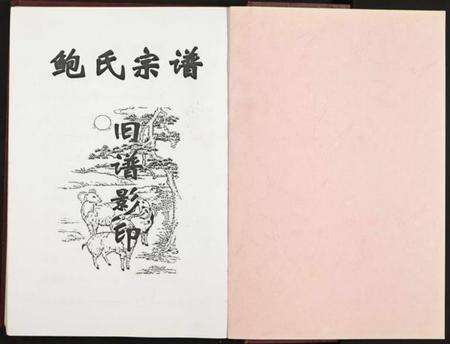 鲍氏宗谱
旧谱影印